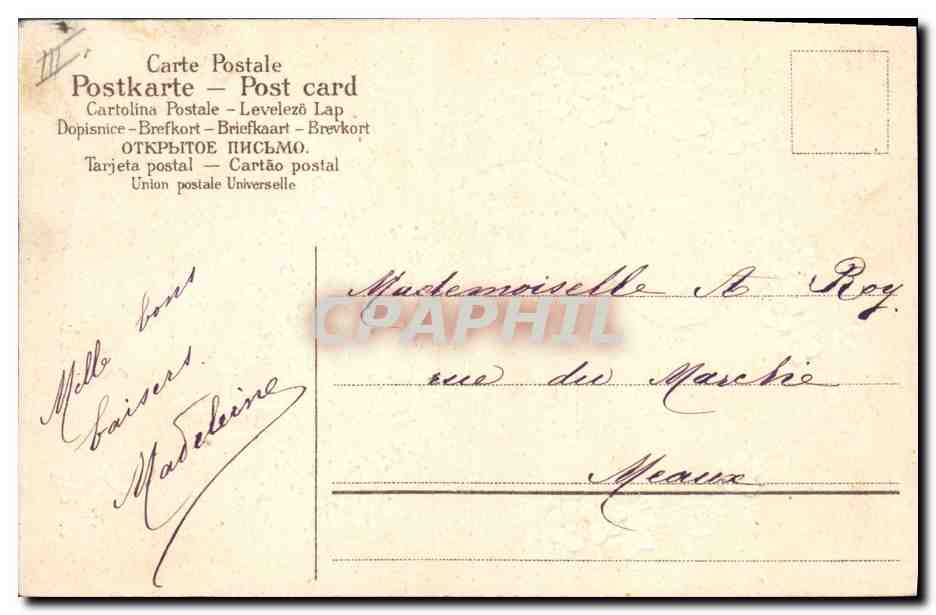 III.
Carte Postale
Postkarte — Post card
Cartolina Postale – Levelezö Lap
Dopisnice – Brefkort – Briefkaart – Brevkort
ОТКРЫТОЕ ПИСЬМО.
Tarjeta postal — Cartão postal
Union postale Universelle
Mille bons
baisers.
Madeleine
Mademoiselle A Roy.
rue du Marché
Meaux
CPAPHIL